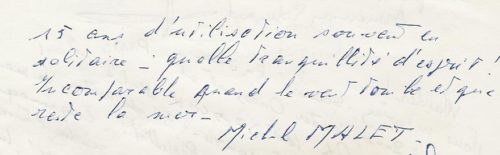 15 ans d'utilisation souvent en
solitaire - quelle tranquillité d'esprit !
Incomparable quand le vent tombe et que
reste la mer -
Michel MALET -